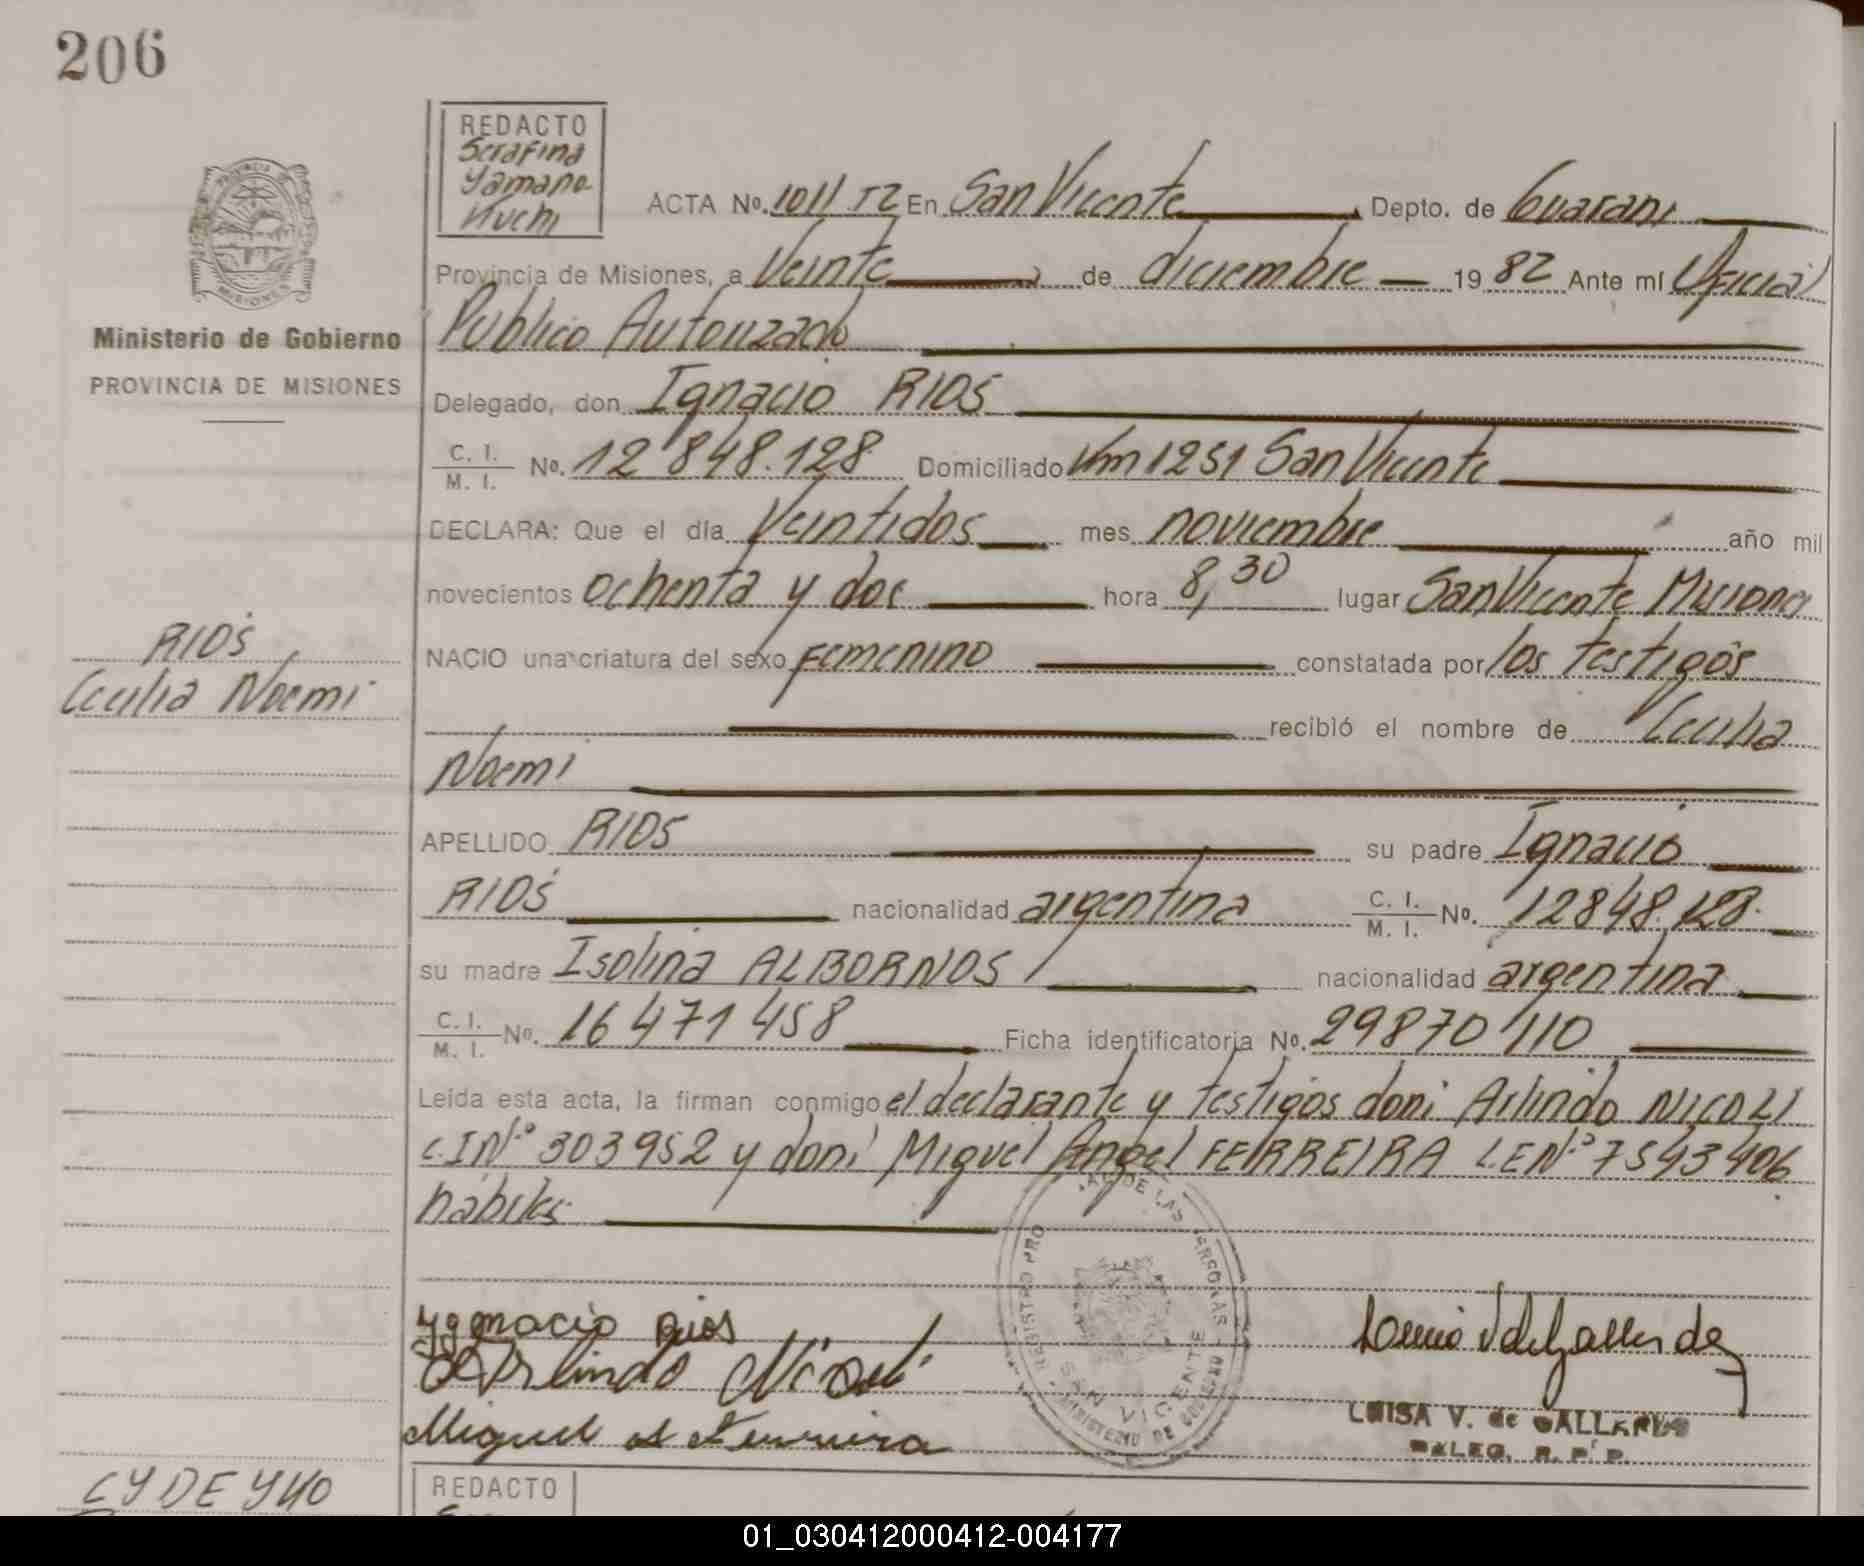 206
REDACTO
Serafina
Yamana
Kuchi
ACTA No. 1011 T2 En San Vicente Depto. de Guarani
PROVINCIA DE MISIONES
Provincia de Misiones, a Veinte de diciembre 1982 Ante mí Oficial
Publico Autorizado
Ministerio de Gobierno
PROVINCIA DE MISIONES
Delegado, don Ignacio RIOS
C. I. / M. I. No. 12 848.128 Domiciliado Km 1251 San Vicente
DECLARA: Que el día Veintidos mes noviembre año mil
novecientos ochenta y dos hora 8,30 lugar San Vicente Misiones
RIOS
Cecilia Noemi
NACIO una criatura del sexo femenino constatada por los testigos
recibió el nombre de Cecilia
Noemi
APELLIDO RIOS su padre Ignacio
RIOS nacionalidad argentina C. I. / M. I. No. 12848.128.
su madre Isolina ALBORNOS nacionalidad argentina
C. I. / M. I. No. 16 471 458 Ficha identificatoria No. 29870110
Leída esta acta, la firman conmigo el declarante y testigos don: Arlindo NICOLI
C.I Nº 303952 y don: Miguel Angel FERREIRA L.E Nº 7543406
hábiles
REGISTRO PRO DE LAS PERSONAS
SAN VICENTE
MINISTERIO DE GOBIERNO
ygnacio Rios
Arlindo Nicoli
Miguel A Ferreira
LUISA V. de GALLARDO
DALEG. R. P. P.
CYDEYKO
REDACTO
01_030412000412-004177